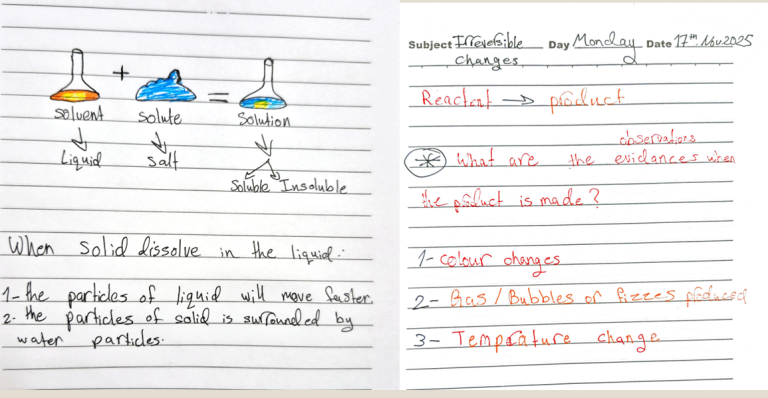 +
=
Solvent Solute Solution
Liquid Salt
Soluble Insoluble
When Solid dissolve in the liquid:-
1- the particles of liquid will move faster.
2- the particles of solid is surrounded by
water particles.
Subject Irreversible Day Monday Date 17th. Nov 2025
changes
Reactant → product
observations
* What are the evidances when
the product is made?
1- colour changes
2- Gas / Bubbles or fizzes produced
3- Temprature change